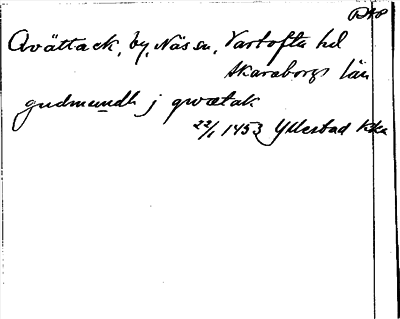 Qvättack, by, Näs sn, Vartofta hd
Skaraborgs län
gudmundh j qwætak
22/1 1453 Yllestad